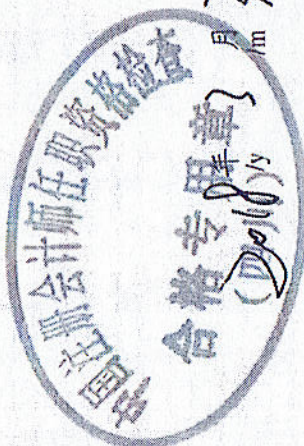 中国注册会计师任职资格检查
合格专用章
(四川)
2018年 月
/y /m